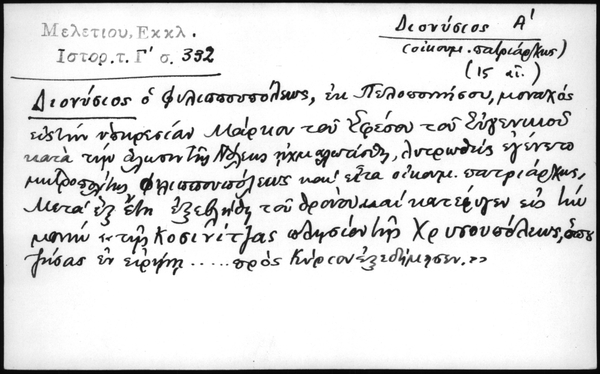 Μελετίου, Εκκλ.
Ιστορ. τ. Γ' σ. 332
Διονύσιος Α'
(οικουμ. πατριάρχης)
(15 αἰ.)
Διονύσιος ὁ Φιλιππουπόλεως, ἐκ Πελοποννήσου, μοναχός
εἰς τὴν ὑπηρεσίαν Μάρκου τοῦ Ἐφέσου τοῦ Εὐγενικοῦ
κατὰ τὴν ἅλωσιν τῆς Πόλεως ᾐχμαλωτίσθη, λυτρωθείς ἐγένετο
μητροπολίτης Φιλιππουπόλεως καὶ εἶτα οἰκουμ. πατριάρχης,
Μετά ἓξ ἔτη ἐξεβλήθη τοῦ θρόνου καί κατέφυγεν εἰς τὴν
μονήν τῆς Κοσινίτζας πλησίον τῆς Χρυσουπόλεως, ὅπου
ζήσας ἐν εἰρήνῃ ..... πρός Κύριον ἐξεδήμησεν. »